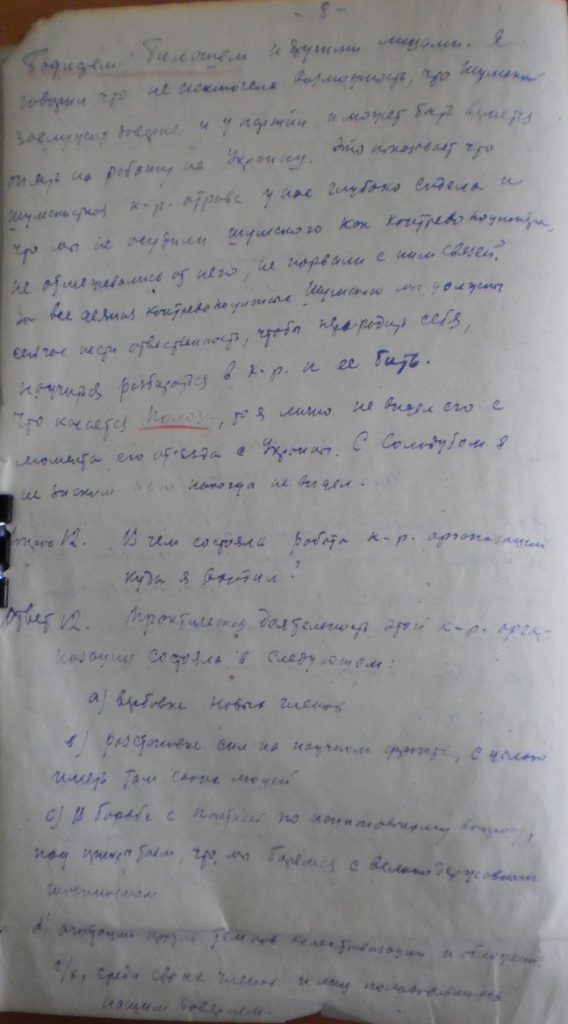 - 8 -
и другими лицами. Я
говорил что не исключена возможность, что Шумский
заслужил доверие и у партии и может быть вернется
опять на работу на Украину. Это показывает что
к-р. отрава у нас глубоко сидела и
что мы не осудили Шумского как контрреволюционера,
не отмежевались от него, не порвали с ним связей.
За все деяния Шумского мы должны
сейчас нести ответственность, чтобы переродить себя,
научится разбиратся в к-р. и ее бить.
Что касается Полоза, то я лично не видел его с
момента его от'езда с Украины. С Солодубом я
не знаком и его никогда не видел.
Вопрос 12. В чем состояла работа к-р. организации
куда я входил?
Ответ 12. Практическая деятельность этой к-р. орга-
низации состояла в следующем:
а) вербовке новых членов
в) расстановке сил на научном фронте, с целью
иметь там своих людей
с) В борьбе с партией по национальному вопросу,
под прикрытием, что мы боремся с великодержавным
шовинизмом
d) агитации против темпов колективизации и
с/х, среди своих членов и лиц
нашим доверием.